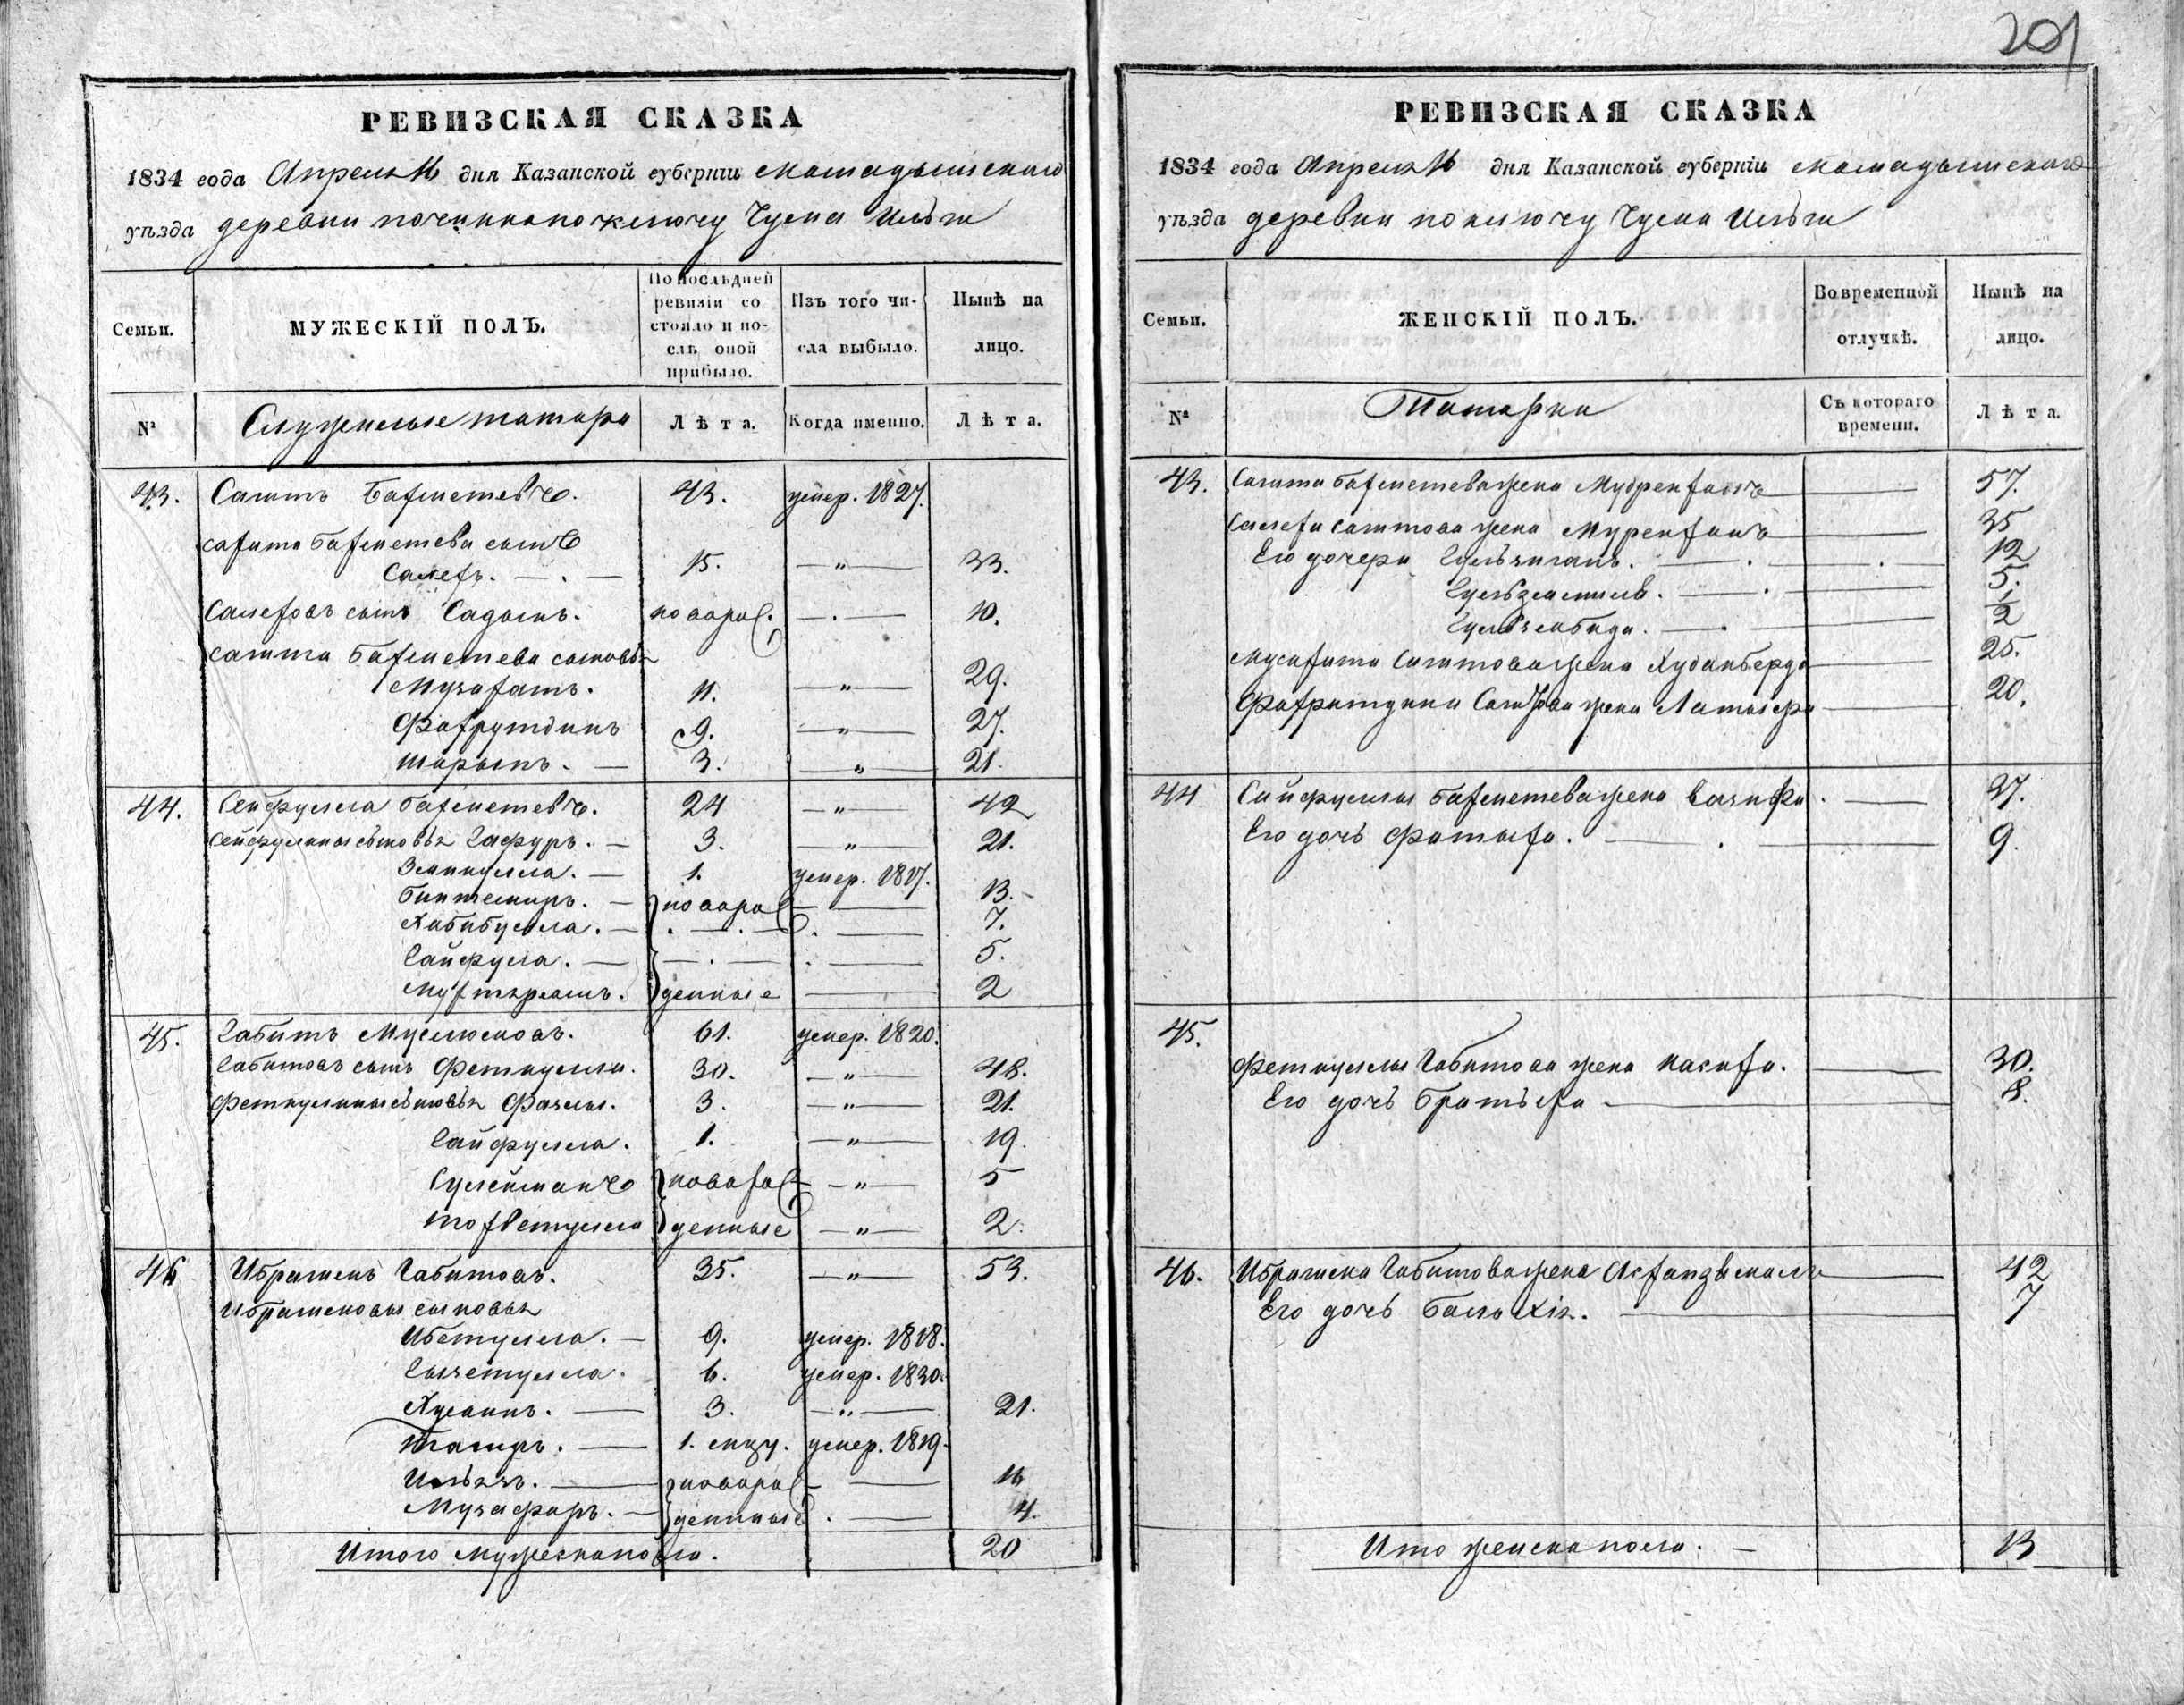 201
РЕВИЗСКАЯ СКАЗКА
1834 года Апреля 16 дня Казанской губернiи Мамадышскаго
уѣзда деревни починка по ключу Чулпа Ильги
Семьи.
МУЖЕСКIЙ ПОЛЪ.
По послѣдней ревизiи состояло и послѣ оной прибыло.
Изъ того числа выбыло.
Нынѣ на лицо.
№
Служилые татара
Лѣта.
Когда именно.
Лѣта.
43. Сагитъ Бахметевъ. 43. умер. 1827.
Сагита Бахметева сынъ
Салехъ. — . — 15. — " — 33.
Салеховъ сынъ Садыкъ. новорож. — . — 10.
Сагита Бахметева сыновья
11. — " — 29.
Фахрутдинъ 9. — " — 27.
Шарыпъ. — 3. — " 21.
44. Сейфулла Бахметевъ. 24 — " — 42
Сейфуллины сыновья Гафуръ. — 3. — " 21.
1. умер. 1817.
Биктемиръ. — новорож — 13. –
Хабибулла. — . — . — . — 7.
Гайфулла. — — . — . — 5.
денные — 2
45. Габитъ Муслюмовъ. 61. умер. 1820.
Габитовъ сынъ Феткулла. 30. — " — 48.
Феткуллины сыновья Фазлы. 3. — " — 21.
Гайфулла. 1. — " — 19.
Сулейманъ новорож — " — 5
денные — " — 2.
46 Ибрагимъ Габитовъ. 35. — " — 53.
Ибрагимовы сыновья
9. умер. 1818.
6. умер. 1830.
Хусаинъ. — 3. — " — 21.
Тагиръ. — 1. умер. 1819.
Ильясъ. — новорож — 16
Музафаръ. — денные . — 4.
Итого мужеска пола. 20
РЕВИЗСКАЯ СКАЗКА
1834 года Апреля 16 дня Казанской губернiи Мамадышскаго
уѣзда деревни по ключу Чулпа Ильги
Семьи.
ЖЕНСКIЙ ПОЛЪ.
Во временной отлучкѣ.
Нынѣ на лицо.
№
Татарки
Съ котораго времени.
Лѣта.
43. Сагита Бахметева жена — 57.
Салеха Сагитова жена — 35
Его дочери — . — . — 12
— . — 5.
— . — 1/2
Сагитова жена — 25.
Фахритдина Сагитова жена — 20.
44 Сайфуллы Бахметева жена . — 37.
Его дочь Фатыха. — . — 9.
45.
Феткуллы Габитова жена . — 30.
Его дочь — 8.
46. Ибрагима Габитова жена — 42
Его дочь . — 7
Итого женска пола. – 13